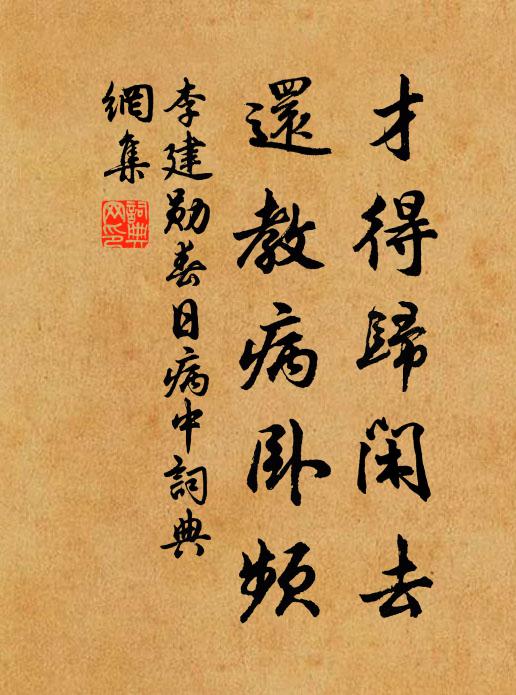 才得歸閑去
還教病卧頻
李建勋春日病中詞典
網集
詞典
网印